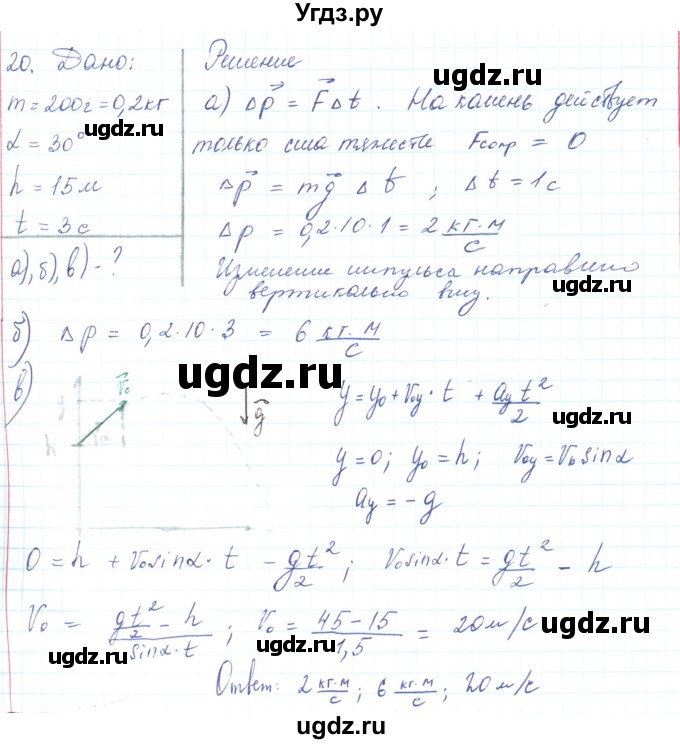 Угдз.ру
20. Дано:
m = 200г = 0,2кг
α = 30°
h = 15м
t = 3с
а), б), в) - ?
Решение
а) Δp⃗ = F⃗Δt . На камень действует
только сила тяжести Fсопр = 0
Δp⃗ = mg⃗ Δt ; Δt = 1с
Δp = 0,2·10·1 = 2 кг·м/с
Изменение импульса направлено
вертикально вниз.
б) Δp = 0,2·10·3 = 6 кг·м/с
в)
y
v⃗₀
α
h
g⃗
y = y₀ + v₀y · t + ayt²/2
y = 0; y₀ = h; v₀y = v₀ sinα
ay = -g
0 = h + v₀sinα · t - gt²/2 ; v₀sinα · t = gt²/2 - h
v₀ = (gt²/2 - h)/(sinα·t) ; v₀ = (45-15)/1,5 = 20м/с
Ответ: 2 кг·м/с ; 6 кг·м/с ; 20м/с
ugdz.ru
ugdz.ru
ugdz.ru
ugdz.ru
ugdz.ru
ugdz.ru
ugdz.ru
ugdz.ru
ugdz.ru
ugdz.ru